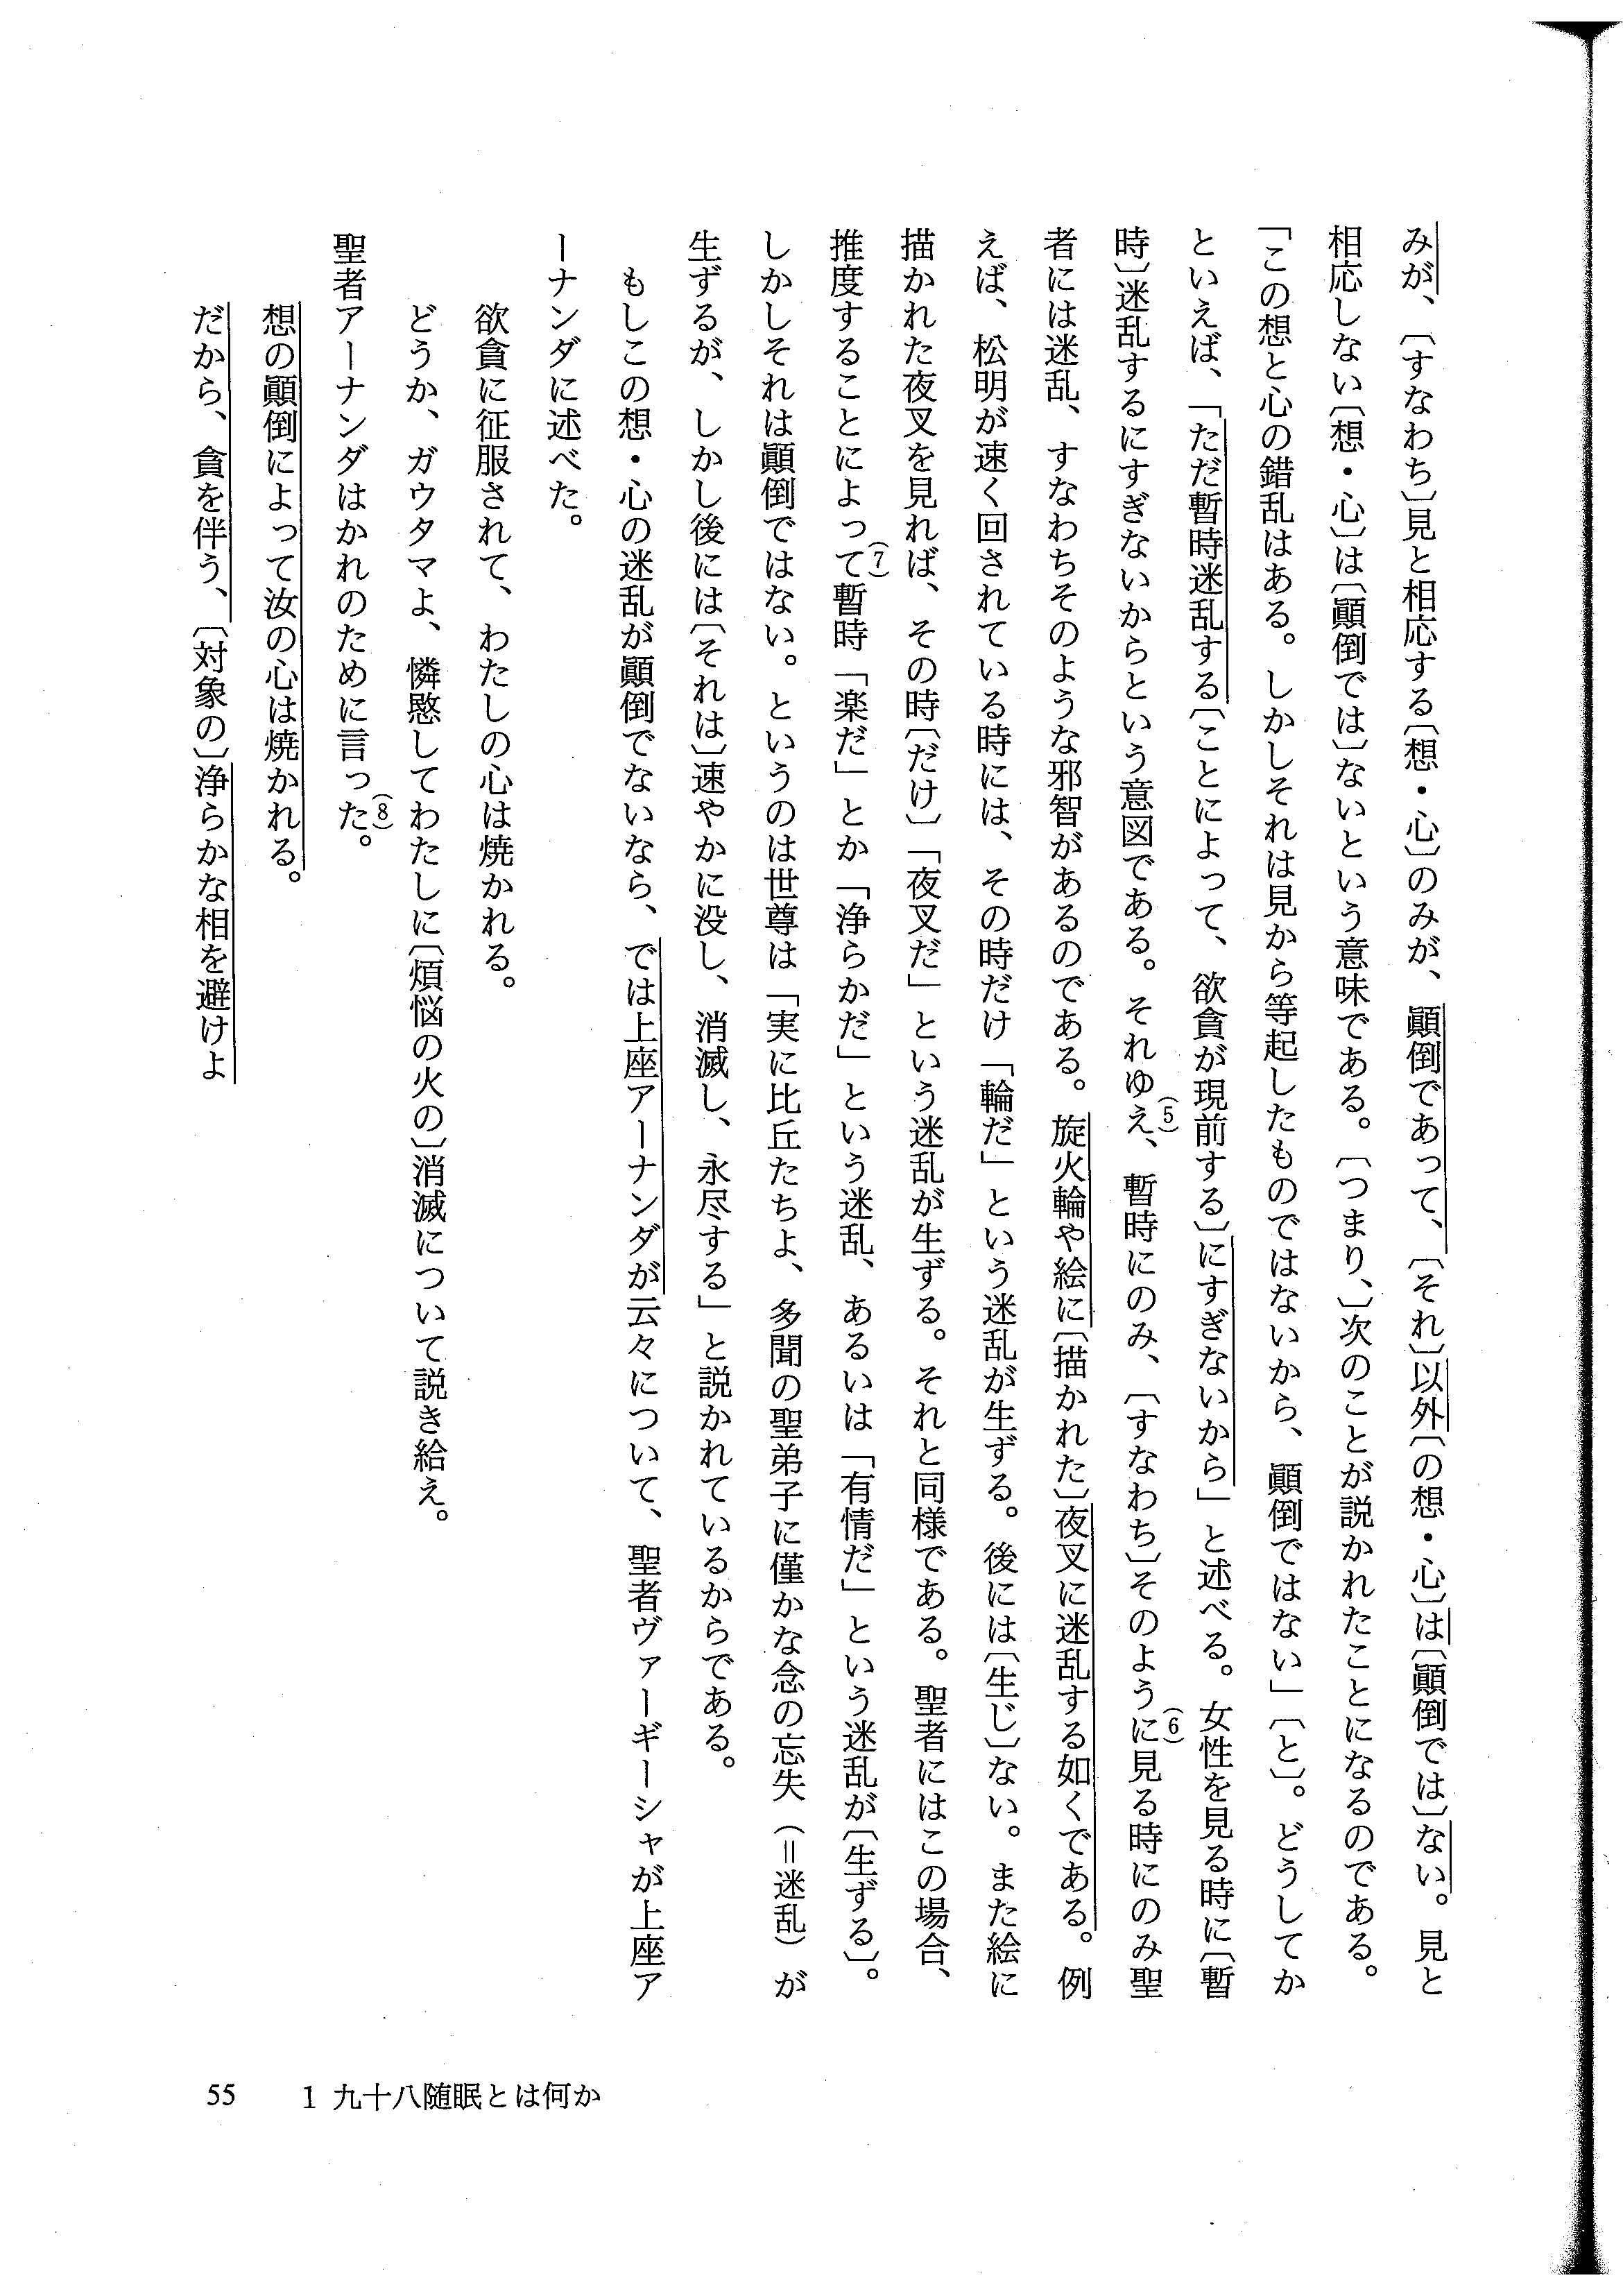 みが、〔すなわち〕見と相応する〔想・心〕のみが、顚倒であって、〔それ〕以外〔の想・心〕は〔顚倒では〕ない。見と
相応しない〔想・心〕は〔顚倒では〕ないという意味である。〔つまり、〕次のことが説かれたことになるのである。
「この想と心の錯乱はある。しかしそれは見から等起したものではないから、顚倒ではない」〔と〕。どうしてか
といえば、「ただ暫時迷乱する〔ことによって、欲貪が現前する〕にすぎないから」と述べる。女性を見る時に〔暫
時〕迷乱するにすぎないからという意図である。それゆえ(5)、暫時にのみ、〔すなわち〕そのように(6)見る時にのみ聖
者には迷乱、すなわちそのような邪智があるのである。旋火輪や絵に〔描かれた〕夜叉に迷乱する如くである。例
えば、松明が速く回されている時には、その時だけ「輪だ」という迷乱が生ずる。後には〔生じ〕ない。また絵に
描かれた夜叉を見れば、その時〔だけ〕「夜叉だ」という迷乱が生ずる。それと同様である。聖者にはこの場合、
推度することによって(7)暫時「楽だ」とか「浄らかだ」という迷乱、あるいは「有情だ」という迷乱が〔生ずる〕。
しかしそれは顚倒ではない。というのは世尊は「実に比丘たちよ、多聞の聖弟子に僅かな念の忘失（＝迷乱）が
生ずるが、しかし後には〔それは〕速やかに没し、消滅し、永尽する」と説かれているからである。
もしこの想・心の迷乱が顚倒でないなら、では上座アーナンダが云々について、聖者ヴァーギーシャが上座ア
ーナンダに述べた。
欲貪に征服されて、わたしの心は焼かれる。
どうか、ガウタマよ、憐愍してわたしに〔煩悩の火の〕消滅について説き給え。
聖者アーナンダはかれのために言った(8)。
想の顚倒によって汝の心は焼かれる。
だから、貪を伴う、〔対象の〕浄らかな相を避けよ
55 1 九十八随眠とは何か